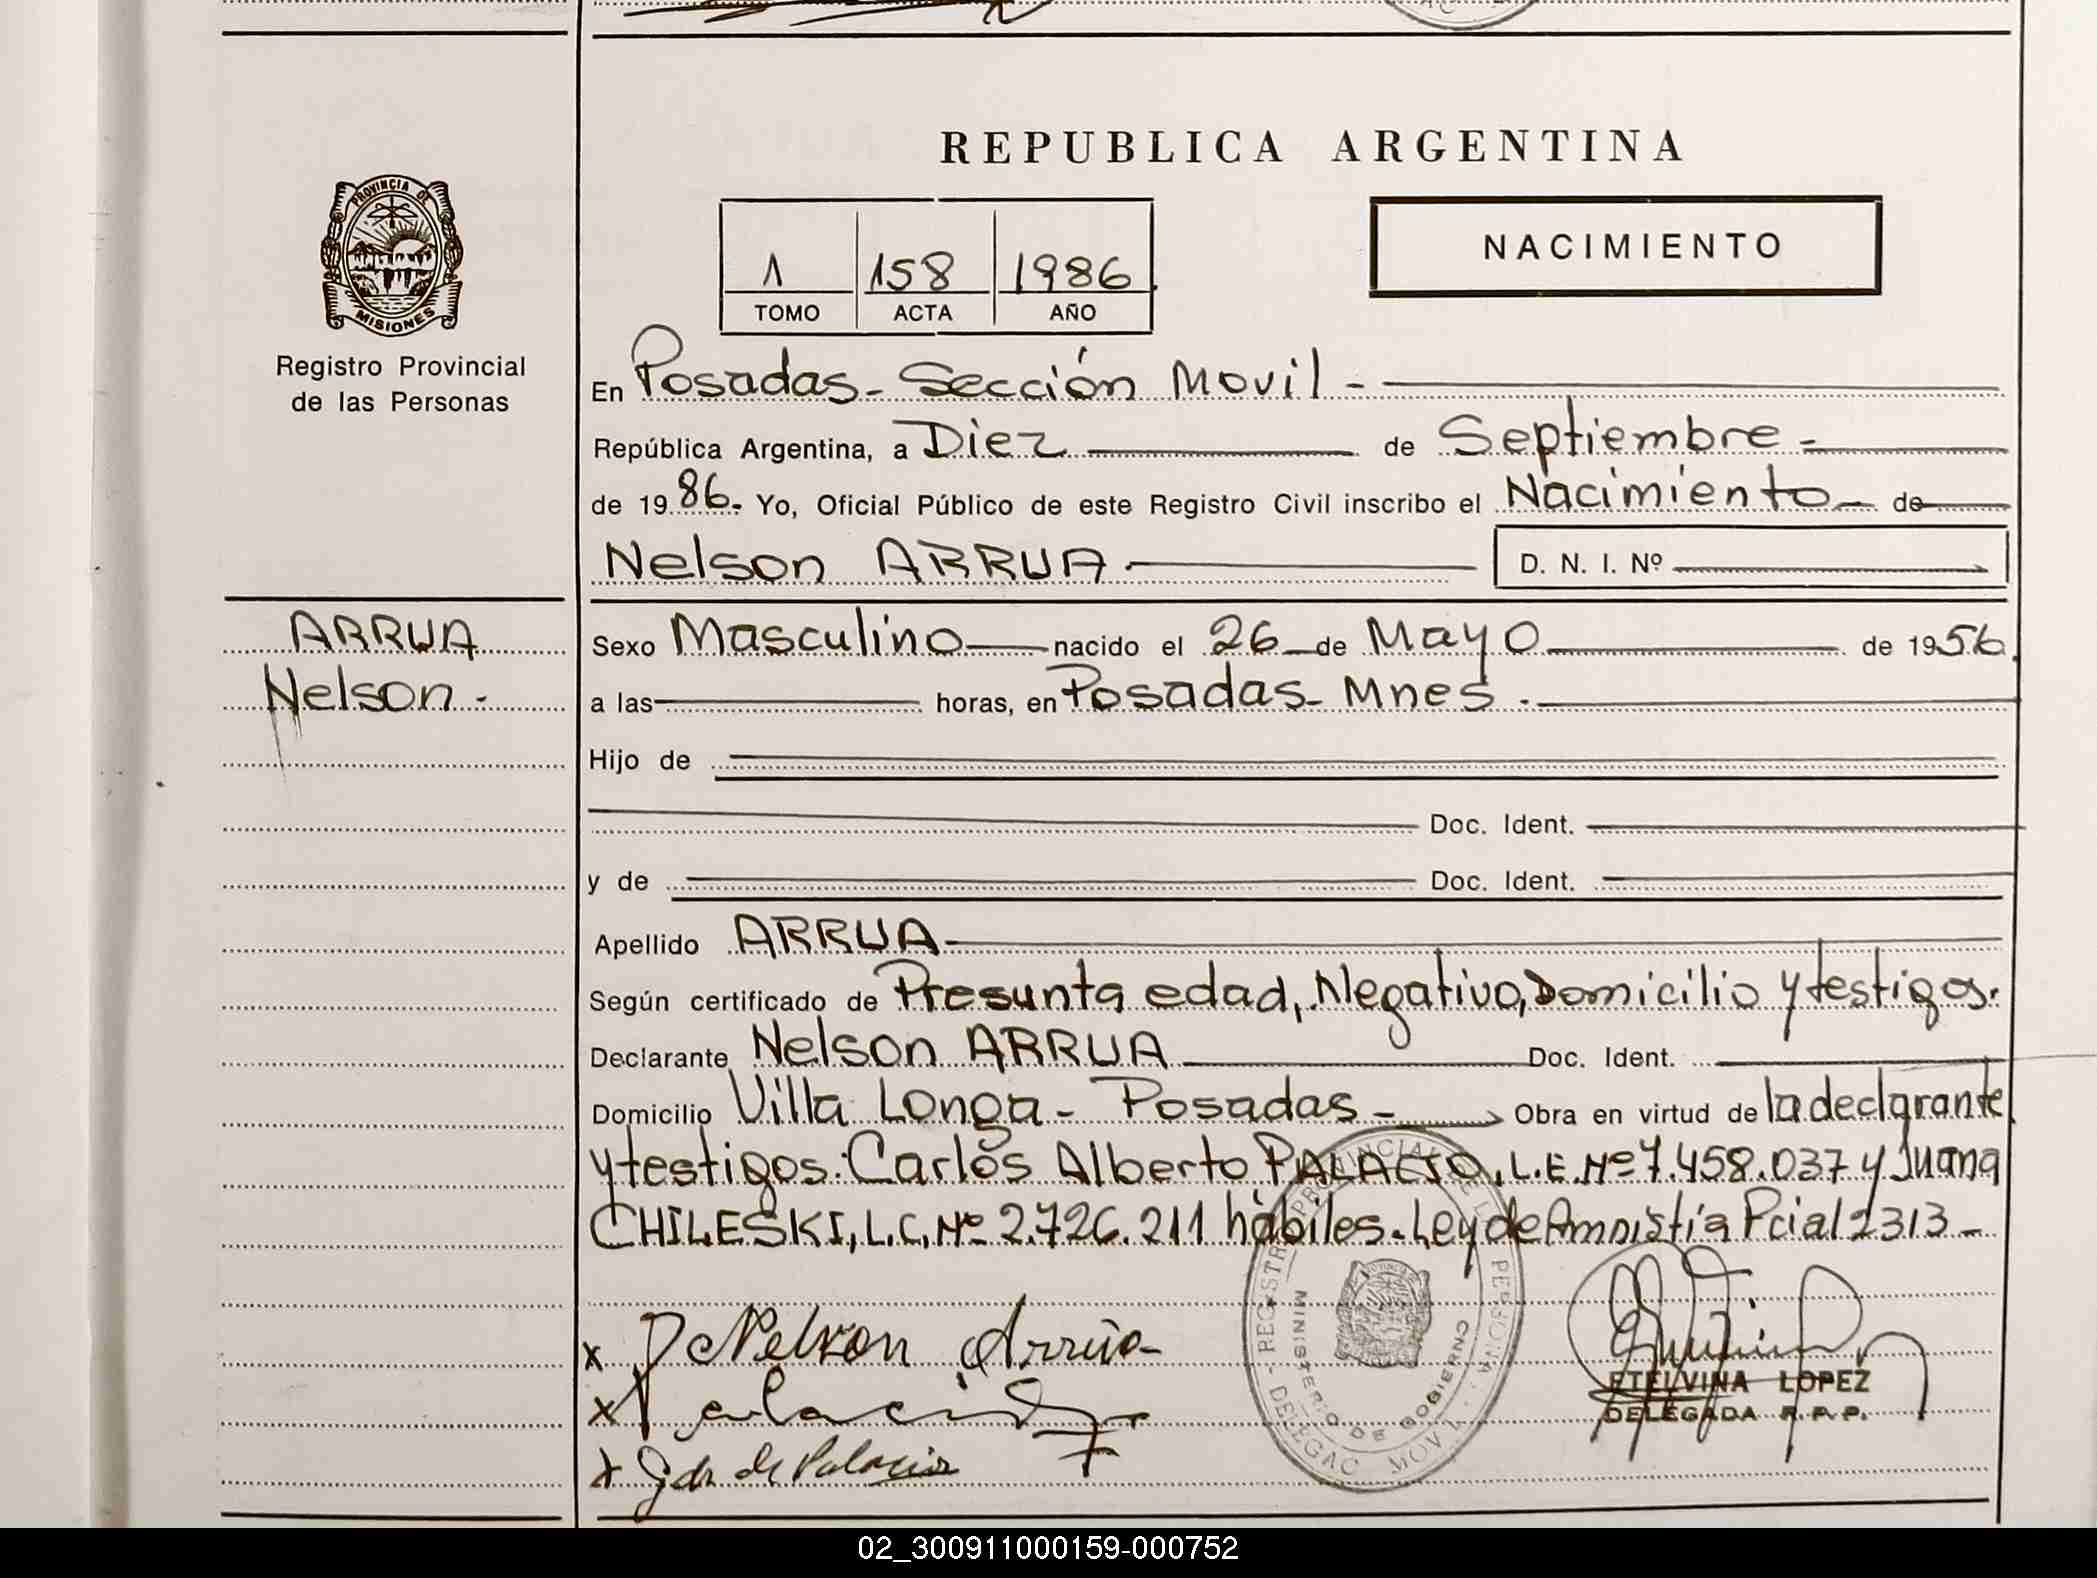 REPUBLICA ARGENTINA
PROVINCIA DE MISIONES
Registro Provincial
de las Personas
NACIMIENTO
1 158 1986
TOMO ACTA AÑO
En Posadas - Sección Movil -
República Argentina, a Diez de Septiembre -
de 1986. Yo, Oficial Público de este Registro Civil inscribo el Nacimiento de
Nelson ARRUA D. N. I. Nº
ARRUA
Nelson -
Sexo Masculino nacido el 26 de Mayo de 1956
a las horas, en Posadas - Mnes -
Hijo de
Doc. Ident.
y de Doc. Ident.
Apellido ARRUA
Según certificado de Presunta edad, Negativo, Domicilio y testigos.
Declarante Nelson ARRUA Doc. Ident.
Domicilio Villa Longa - Posadas - Obra en virtud de la declarante
y testigos: Carlos Alberto PALACIO, L.E. Nº 7.458.037 y Juana
CHILESKI, L.C. Nº 2.726.211 hábiles. Ley de Amnistía Pcial 2313 -
x Nelson Arrúa
x Palacio
x de Palacio
REGISTRO PROVINCIAL DE PERSONAS - DELEGAC. MOVIL
MINISTERIO DE GOBIERNO
ETELVINA LOPEZ
DELEGADA R. P. P.
02_300911000159-000752